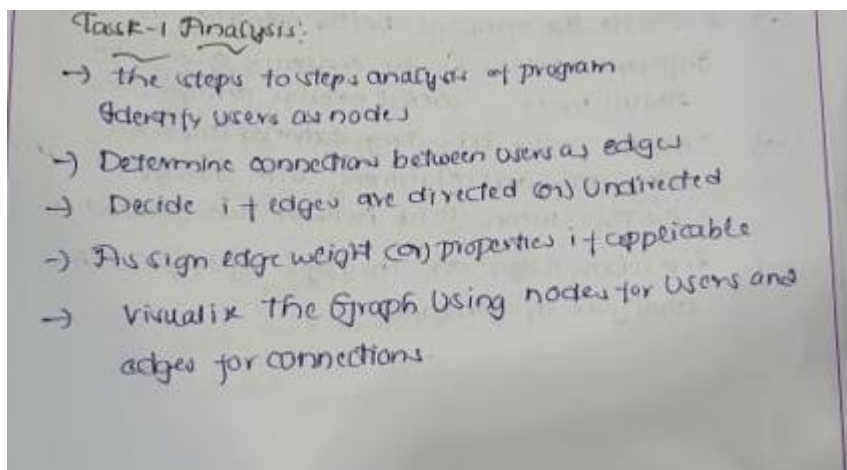 Task-1 Analysis:
→ the steps to steps analysis of program
Identify users as nodes
→ Determine connections between users as edges
→ Decide if edges are directed (or) Undirected
→ Assign edge weight (or) properties if applicable
→ Visualize the Graph Using nodes for Users and
edges for connections.